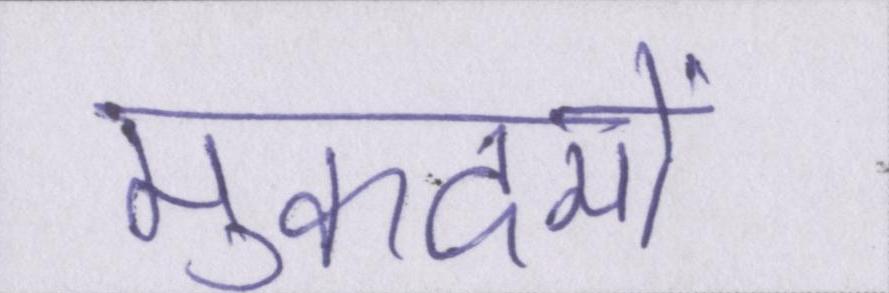 मुकदमों